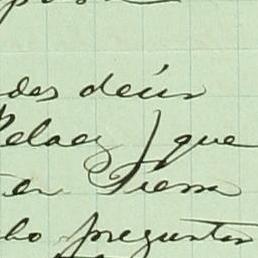 des decir
Pelaez) que
en Tierra
ho preguntar